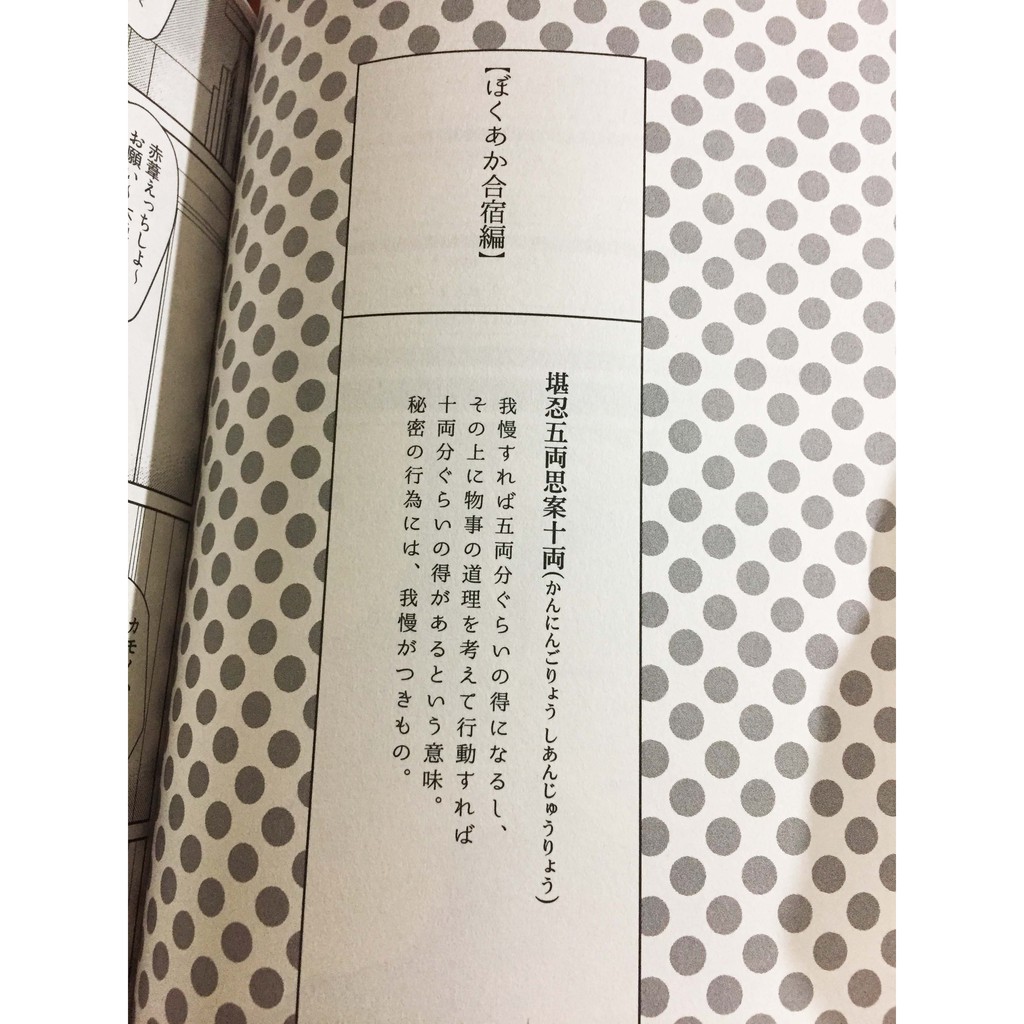 【ぼくあか合宿編】
堪忍五両思案十両(かんにんごりょう しあんじゅうりょう)
我慢すれば五両分ぐらいの得になるし、
その上に物事の道理を考えて行動すれば
十両分ぐらいの得があるという意味。
秘密の行為には、我慢がつきもの。
赤葦えっちしよ～
お願い